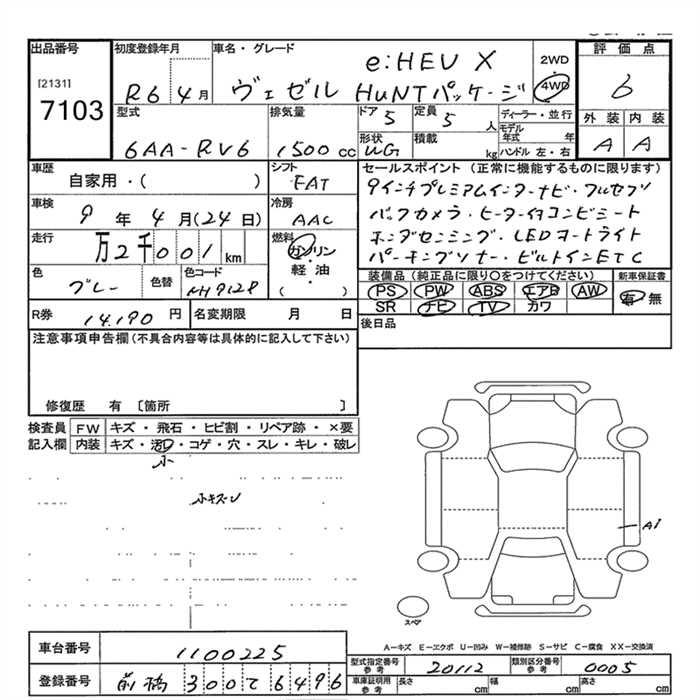 出品番号
[2131]
7103
初度登録年月
R6 4月
車名・グレード
e:HEV X
ヴェゼル HuNTパッケージ
2WD
・
4WD
評価点
6
型式
6AA-RV6
排気量
1500 cc
ドア 5
定員 5 人
形状 WG
積載 kg
ディーラー・並行
モデル年式 年
ハンドル 左・右
外装 内装
A A
車歴
自家用・( )
シフト
FAT
車検
9年 4月(24日)
冷房
AAC
走行
2千001km
燃料
ガソリン
・
軽油
( )
色
グレー
色替
色コード
NH912B
R券
14,190円
名変期限 月 日
セールスポイント(正常に機能するものに限ります)
9インチプレミアムインターナビ・フルセグ
バックカメラ・ヒーター付コンビシート
ホンダセンシング・LEDオートライト
パーキングソナー・ビルトインETC
装備品(純正品に限り〇をつけてください)
PS PW ABS エアB AW
SR ナビ TV カワ
新車保証書
有 無
後日品
注意事項申告欄(不具合内容等は具体的に記入して下さい)
修復歴 有 〔箇所 〕
検査員記入欄
FW キズ・飛石・ヒビ割・リペア跡・×要
内装 キズ・汚レ・コゲ・穴・スレ・キレ・破レ
小
小キズ有
A1
スペア
A―キズ E―エクボ U―凹み W―補修跡 S―サビ C―腐食 XX―交換済
車台番号
1100225
登録番号
前橋 300 て 6496
型式指定番号参考
20112
類別区分番号参考
0005
車庫証明用参考
長さ cm
幅 cm
高さ cm